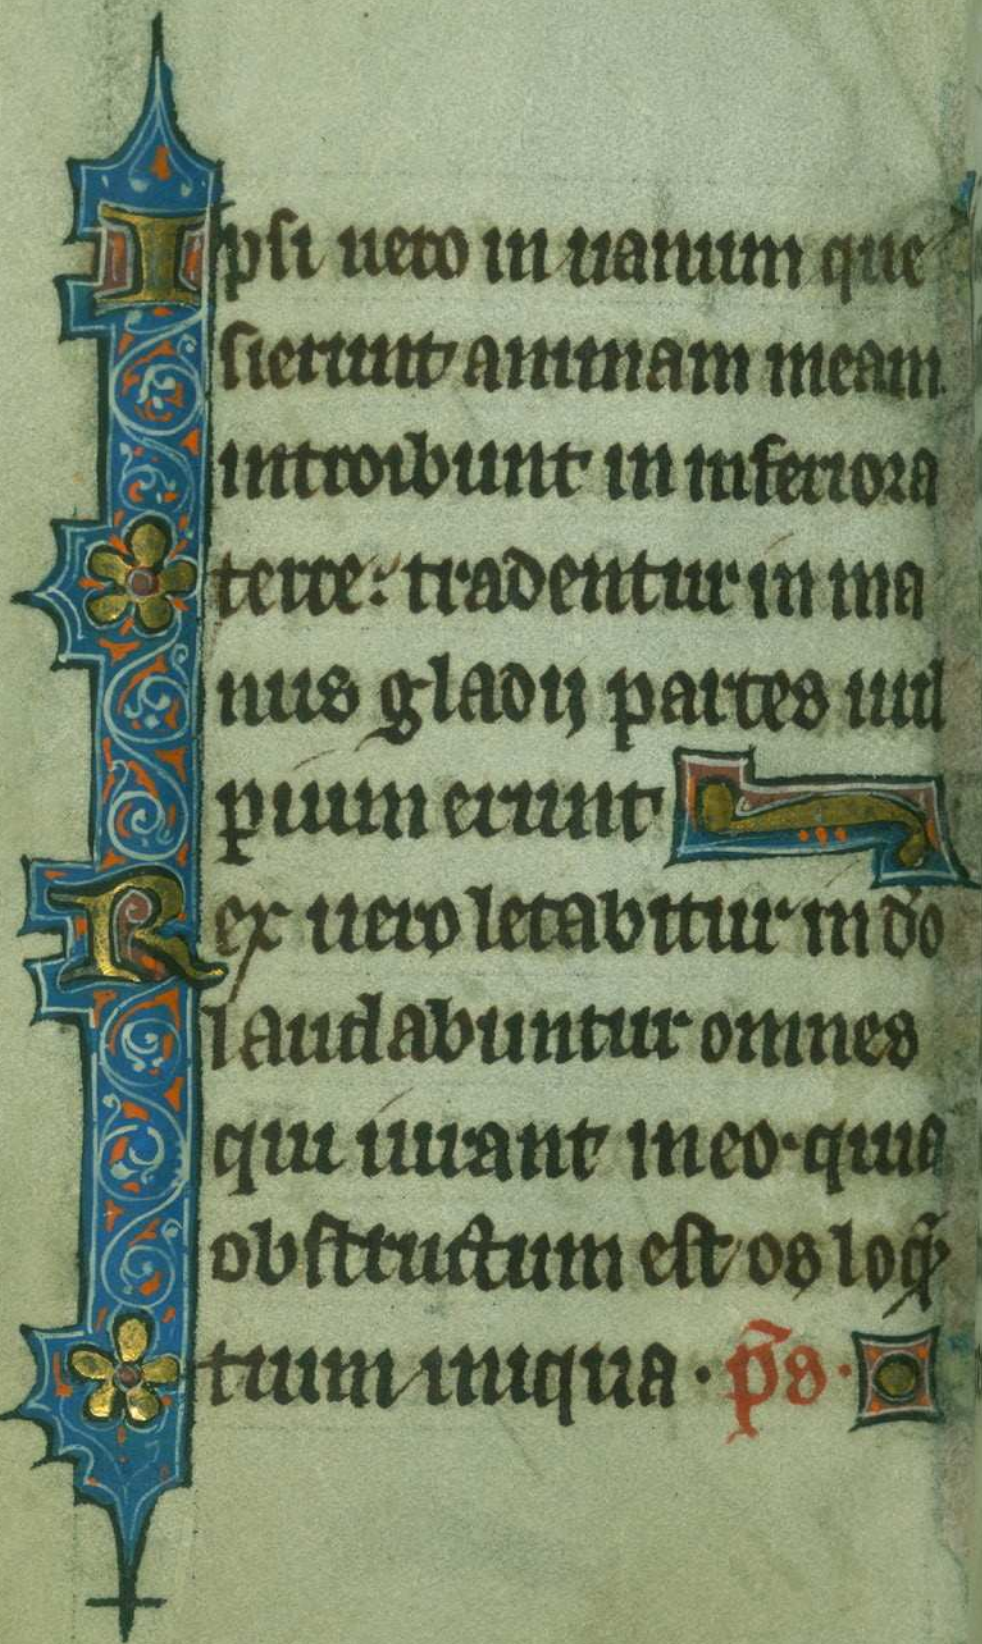 Ipsi uero in uanum que
sierunt animam meam
introibunt in inferiora
terre: tradentur in ma
nus gladij partes uul
pium erunt
Rex uero letabitur in dō
laudabuntur omnes
qui iurant in eo· quia
obstructum est os loq̄
tium iniqua · p̄s·